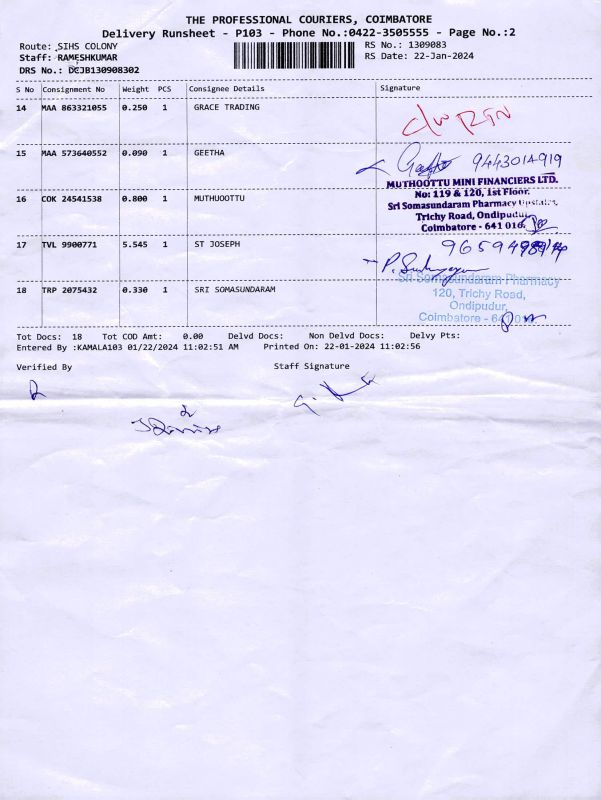 THE PROFESSIONAL COURIERS, COIMBATORE
Delivery Runsheet - P103 - Phone No.:0422-3505555 - Page No.:2
Route: SIHS COLONY RS No.: 1309083
Staff: RAMESHKUMAR RS Date: 22-Jan-2024
DRS No.: DCJB130908302
S No Consignment No Weight PCS Consignee Details Signature
14 MAA 863321055 0.250 1 GRACE TRADING
15 MAA 573640552 0.090 1 GEETHA 9443014919
MUTHOOTTU MINI FINANCIERS LTD.
No: 119 & 120, 1st Floor.
16 COK 24541538 0.800 1 MUTHUOOTTU Sri Somasundaram Pharmacy Upstairs,
Trichy Road, Ondipudur,
Coimbatore - 641 016.
17 TVL 9900771 5.545 1 ST JOSEPH
Sri Somasundaram Pharmacy
18 TRP 2075432 0.330 1 SRI SOMASUNDARAM 120, Trichy Road,
Ondipudur,
Coimbatore - 641 016.
Tot Docs: 18 Tot COD Amt: 0.00 Delvd Docs: Non Delvd Docs: Delvy Pts:
Entered By :KAMALA103 01/22/2024 11:02:51 AM Printed On: 22-01-2024 11:02:56
Verified By Staff Signature